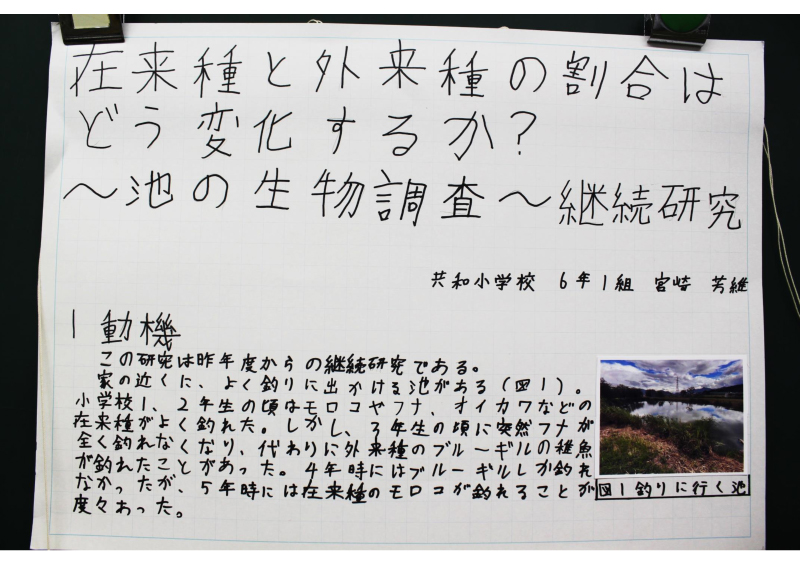 在来種と外来種の割合は
どう変化するか?
～池の生物調査～継続研究
共和小学校 6年1組 宮崎 芳維
1 動機
この研究は昨年度からの継続研究である。
家の近くに、よく釣りに出かける池がある(図1)。
小学校1、2年生の頃はモロコやフナ、オイカワなどの
在来種がよく釣れた。しかし、3年生の頃に突然フナが
全く釣れなくなり、代わりに外来種のブルーギルの稚魚
が釣れたことがあった。4年時にはブルーギルしか釣れ
なかったが、5年時には在来種のモロコが釣れることが
度々あった。
図1釣りに行く池